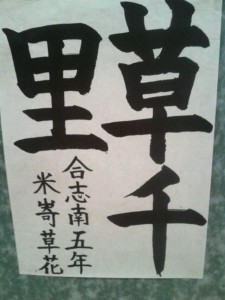 草千
里
合志南五年
米嵜草花